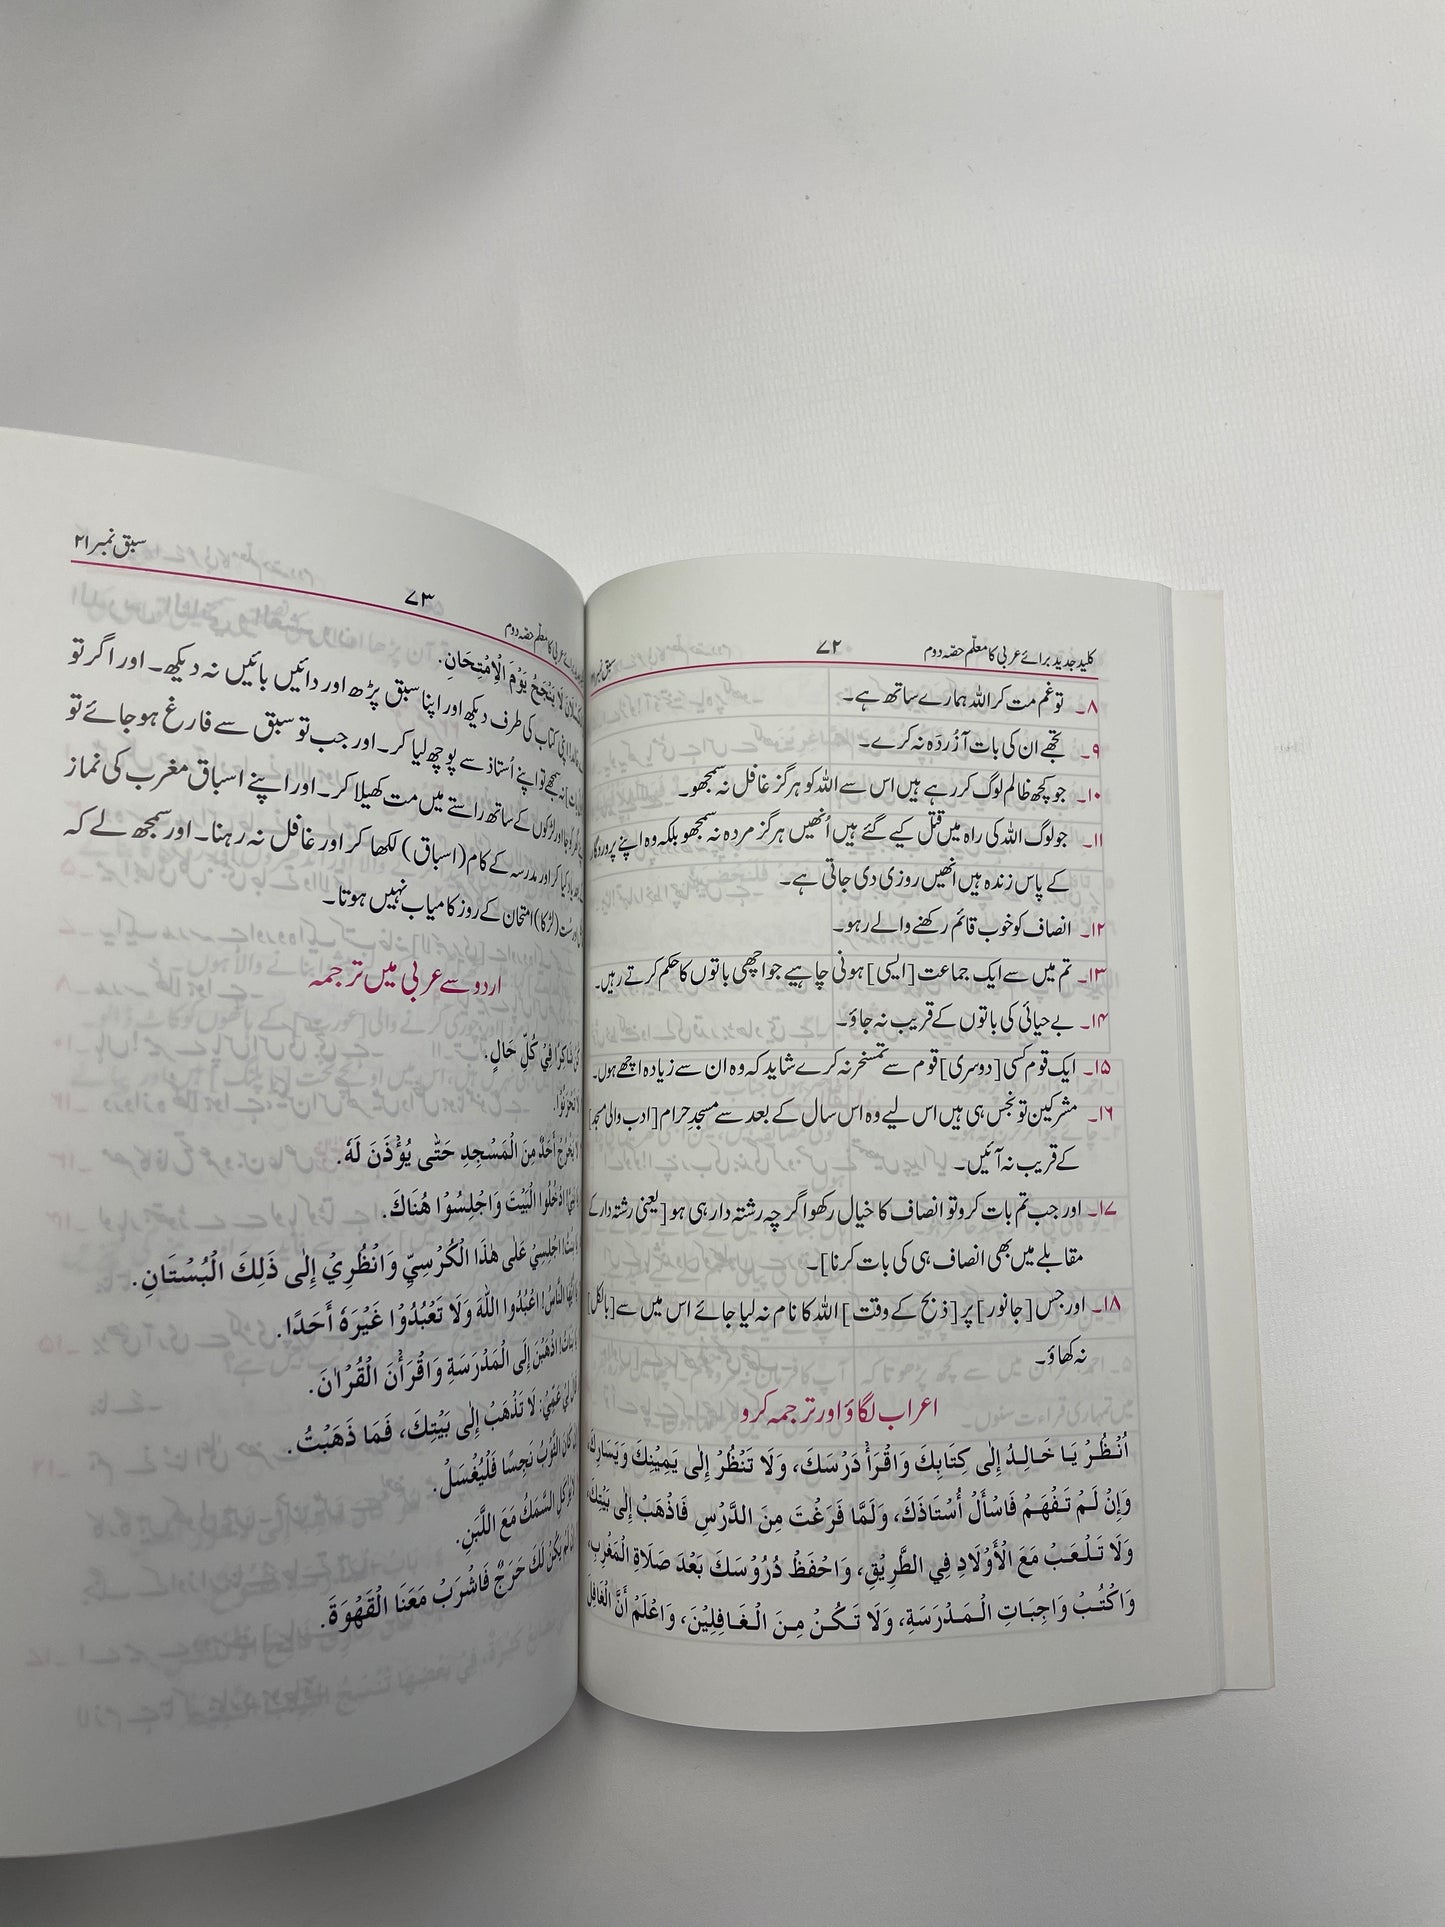 کلید جدید برائے عربی کا معلّم حصّہ دوم ۷۲ سبق نمبر
۸۔ تو غم مت کر اللہ ہمارے ساتھ ہے۔
۹۔ تجھے ان کی بات آزُردَہ نہ کرے۔
۱۰۔ جو کچھ ظالم لوگ کر رہے ہیں اس سے اللہ کو ہرگز غافل نہ سمجھو۔
۱۱۔ جو لوگ اللہ کی راہ میں قتل کیے گئے ہیں اُنھیں ہرگز مردہ نہ سمجھو بلکہ وہ اپنے پروردگار
کے پاس زندہ ہیں انھیں روزی دی جاتی ہے۔
۱۲۔ انصاف کو خوب قائم رکھنے والے رہو۔
۱۳۔ تم میں سے ایک جماعت [ایسی] ہونی چاہیے جو اچھی باتوں کا حکم کرتے رہیں۔
۱۴۔ بے حیائی کی باتوں کے قریب نہ جاؤ۔
۱۵۔ ایک قوم کسی [دوسری] قوم سے تمسخر نہ کرے شاید کہ وہ ان سے زیادہ اچھے ہوں۔
۱۶۔ مشرکین تو نجس ہی ہیں اس لیے وہ اس سال کے بعد سے مسجدِ حرام [ادب والی مسجد]
کے قریب نہ آئیں۔
۱۷۔ اور جب تم بات کرو تو انصاف کا خیال رکھو اگرچہ رشتہ دار ہی ہو [یعنی رشتہ دار کے
مقابلے میں بھی انصاف ہی کی بات کرنا]۔
۱۸۔ اور جس [جانور] پر [ذبح کے وقت] اللہ کا نام نہ لیا جائے اس میں سے [بالکل]
نہ کھاؤ۔
اعراب لگاؤ اور ترجمہ کرو
اُنْظُرْ يَا خَالِدُ إِلٰى كِتَابِكَ وَاقْرَأْ دَرْسَكَ، وَلَا تَنْظُرْ إِلٰى يَمِيْنِكَ وَيَسَارِكَ
وَإِنْ لَمْ تَفْهَمْ فَاسْأَلْ أُسْتَاذَكَ، وَلَمَّا فَرَغْتَ مِنَ الدَّرْسِ فَاذْهَبْ إِلٰى بَيْتِكَ،
وَلَا تَلْعَبْ مَعَ الْأَوْلَادِ فِي الطَّرِيْقِ، وَاحْفَظْ دُرُوْسَكَ بَعْدَ صَلَاةِ الْمَغْرِبِ،
وَاكْتُبْ وَاجِبَاتِ الْمَدْرَسَةِ، وَلَا تَكُنْ مِنَ الْغَافِلِيْنَ، وَاعْلَمْ أَنَّ الْغَافِلَ
عربی کا معلّم حصّہ دوم ۷۳ سبق نمبر ۲۱
لَا يَنْجَحُ يَوْمَ الْاِمْتِحَانِ.
اپنی کتاب کی طرف دیکھ اور اپنا سبق پڑھ اور دائیں بائیں نہ دیکھ۔ اور اگر تو
نہ سمجھے تو اپنے اُستاذ سے پوچھ لیا کر۔ اور جب تو سبق سے فارغ ہو جائے تو
لڑکوں کے ساتھ راستے میں مت کھیلا کر۔ اور اپنے اسباق مغرب کی نماز
کیا کر اور مدرسہ کے کام (اسباق) لکھا کر اور غافل نہ رہنا۔ اور سمجھ لے کہ
(لڑکا) امتحان کے روز کامیاب نہیں ہوتا۔
اردو سے عربی میں ترجمہ
فِيْ كُلِّ حَالٍ.
لَا تَحْزَنُوْا.
لَا يَخْرُجْ أَحَدٌ مِنَ الْمَسْجِدِ حَتّٰى يُؤْذَنَ لَهٗ.
ادْخُلُوا الْبَيْتَ وَاجْلِسُوْا هُنَاكَ.
اجْلِسِيْ عَلٰى هٰذَا الْكُرْسِيِّ وَانْظُرِيْ إِلٰى ذَلِكَ الْبُسْتَانِ.
النَّاسُ! اعْبُدُوا اللهَ وَلَا تَعْبُدُوْا غَيْرَهٗ أَحَدًا.
اذْهَبْنَ إِلَى الْمَدْرَسَةِ وَاقْرَأْنَ الْقُرْاٰنَ.
عَمِّيْ: لَا تَذْهَبْ إِلٰى بَيْتِكَ، فَمَا ذَهَبْتُ.
كَانَ الثَّوْبُ نَجِسًا فَلْيُغْسَلْ.
السَّمَكُ مَعَ اللَّبَنِ.
يَكُنْ لَكَ حَرَجٌ فَاشْرَبْ مَعَنَا الْقَهْوَةَ.